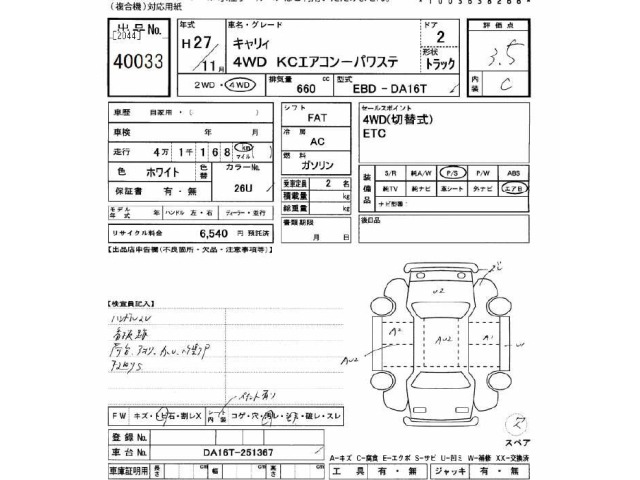 (複合機)対応用紙
出品No.
[2044]
40033
年式
H27
/11月
車名・グレード
キャリィ
4WD KCエアコンーパワステ
ドア
2
形状
トラック
2WD・4WD
排気量
660 cc
型式
EBD-DA16T
評価点
3.5
内装
C
車歴 自家用・( )
車検 年 月
走行 4万 1千 168 km マイル
色 ホワイト 色替 カラーNo.
26U
保証書 有・無
モデル年式 年 ハンドル 左・右 ディーラー・並行
リサイクル料金 6,540 円 預託済
シフト
FAT
冷房
AC
燃料
ガソリン
乗車定員 2 名
積載量 kg
総重量 kg
書類期限
月 日
セールスポイント
4WD(切替式)
ETC
装備品
S/R 純A/W P/S P/W ABS
純TV 純ナビ 革シート 外ナビ エアB
ナビ型番:
後日品
【出品店申告欄(不良箇所・欠品・注意事項等)】
【検査員記入】
U2
A2
AU2
A1
AU2
W
FW キズ・ヒビ石・割レX シート内装 コゲ・穴・汚レ・シミ・破レ・スレ
登録No.
車台No. DA16T-251367
車庫証明用 長さ cm 幅 cm 高さ cm
スペア
A-キズ C-腐食 E-エクボ S-サビ U-凹ミ W-補修 XX-交換済
工具 有・無 ジャッキ 有・無